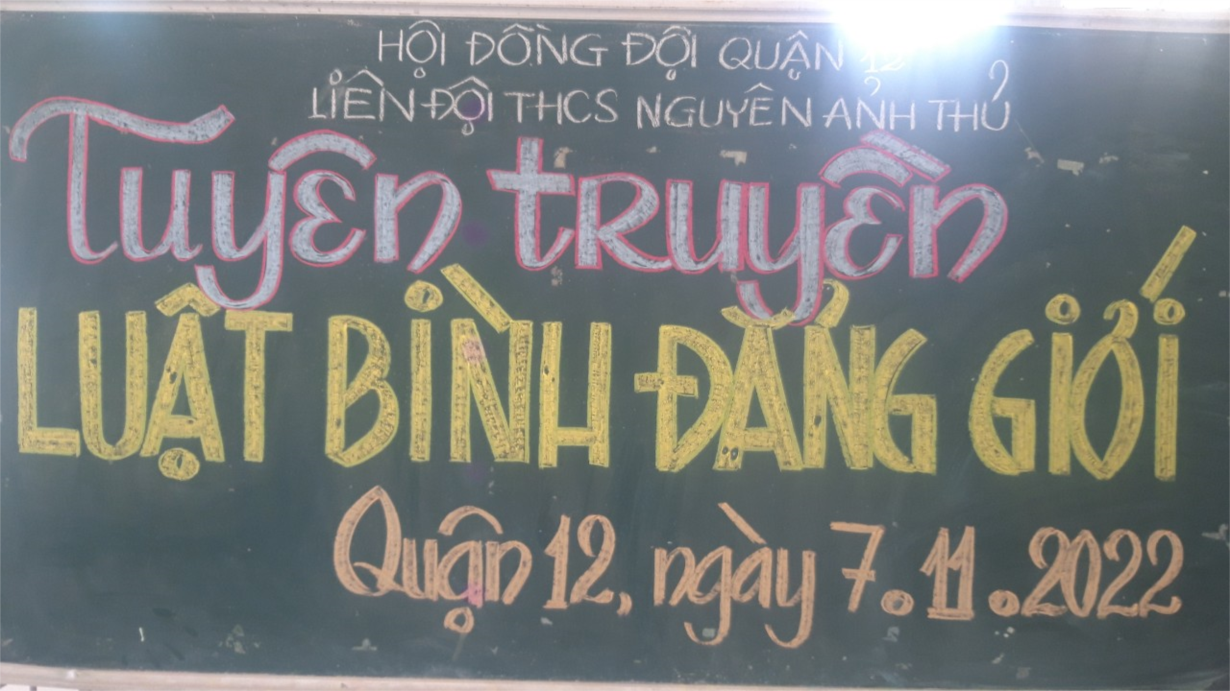 HỘI ĐỒNG ĐỘI QUẬN 12
LIÊN ĐỘI THCS NGUYỄN ẢNH THỦ
Tuyên truyền
LUẬT BÌNH ĐẲNG GIỚI
Quận 12, ngày 7.11.2022